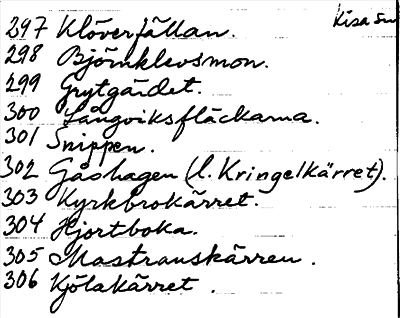 Kisa sn
297 Klöverfällan.
298 Björnklevsmon.
299 Grytgärdet.
300 Långviksfläckarna.
301 Snippen.
302 Gåshagen (l. Kringelkärret).
303 Kyrkbrokärret.
304 Hjortboka.
305 Mastrauskärren.
306 Kjölakärret.